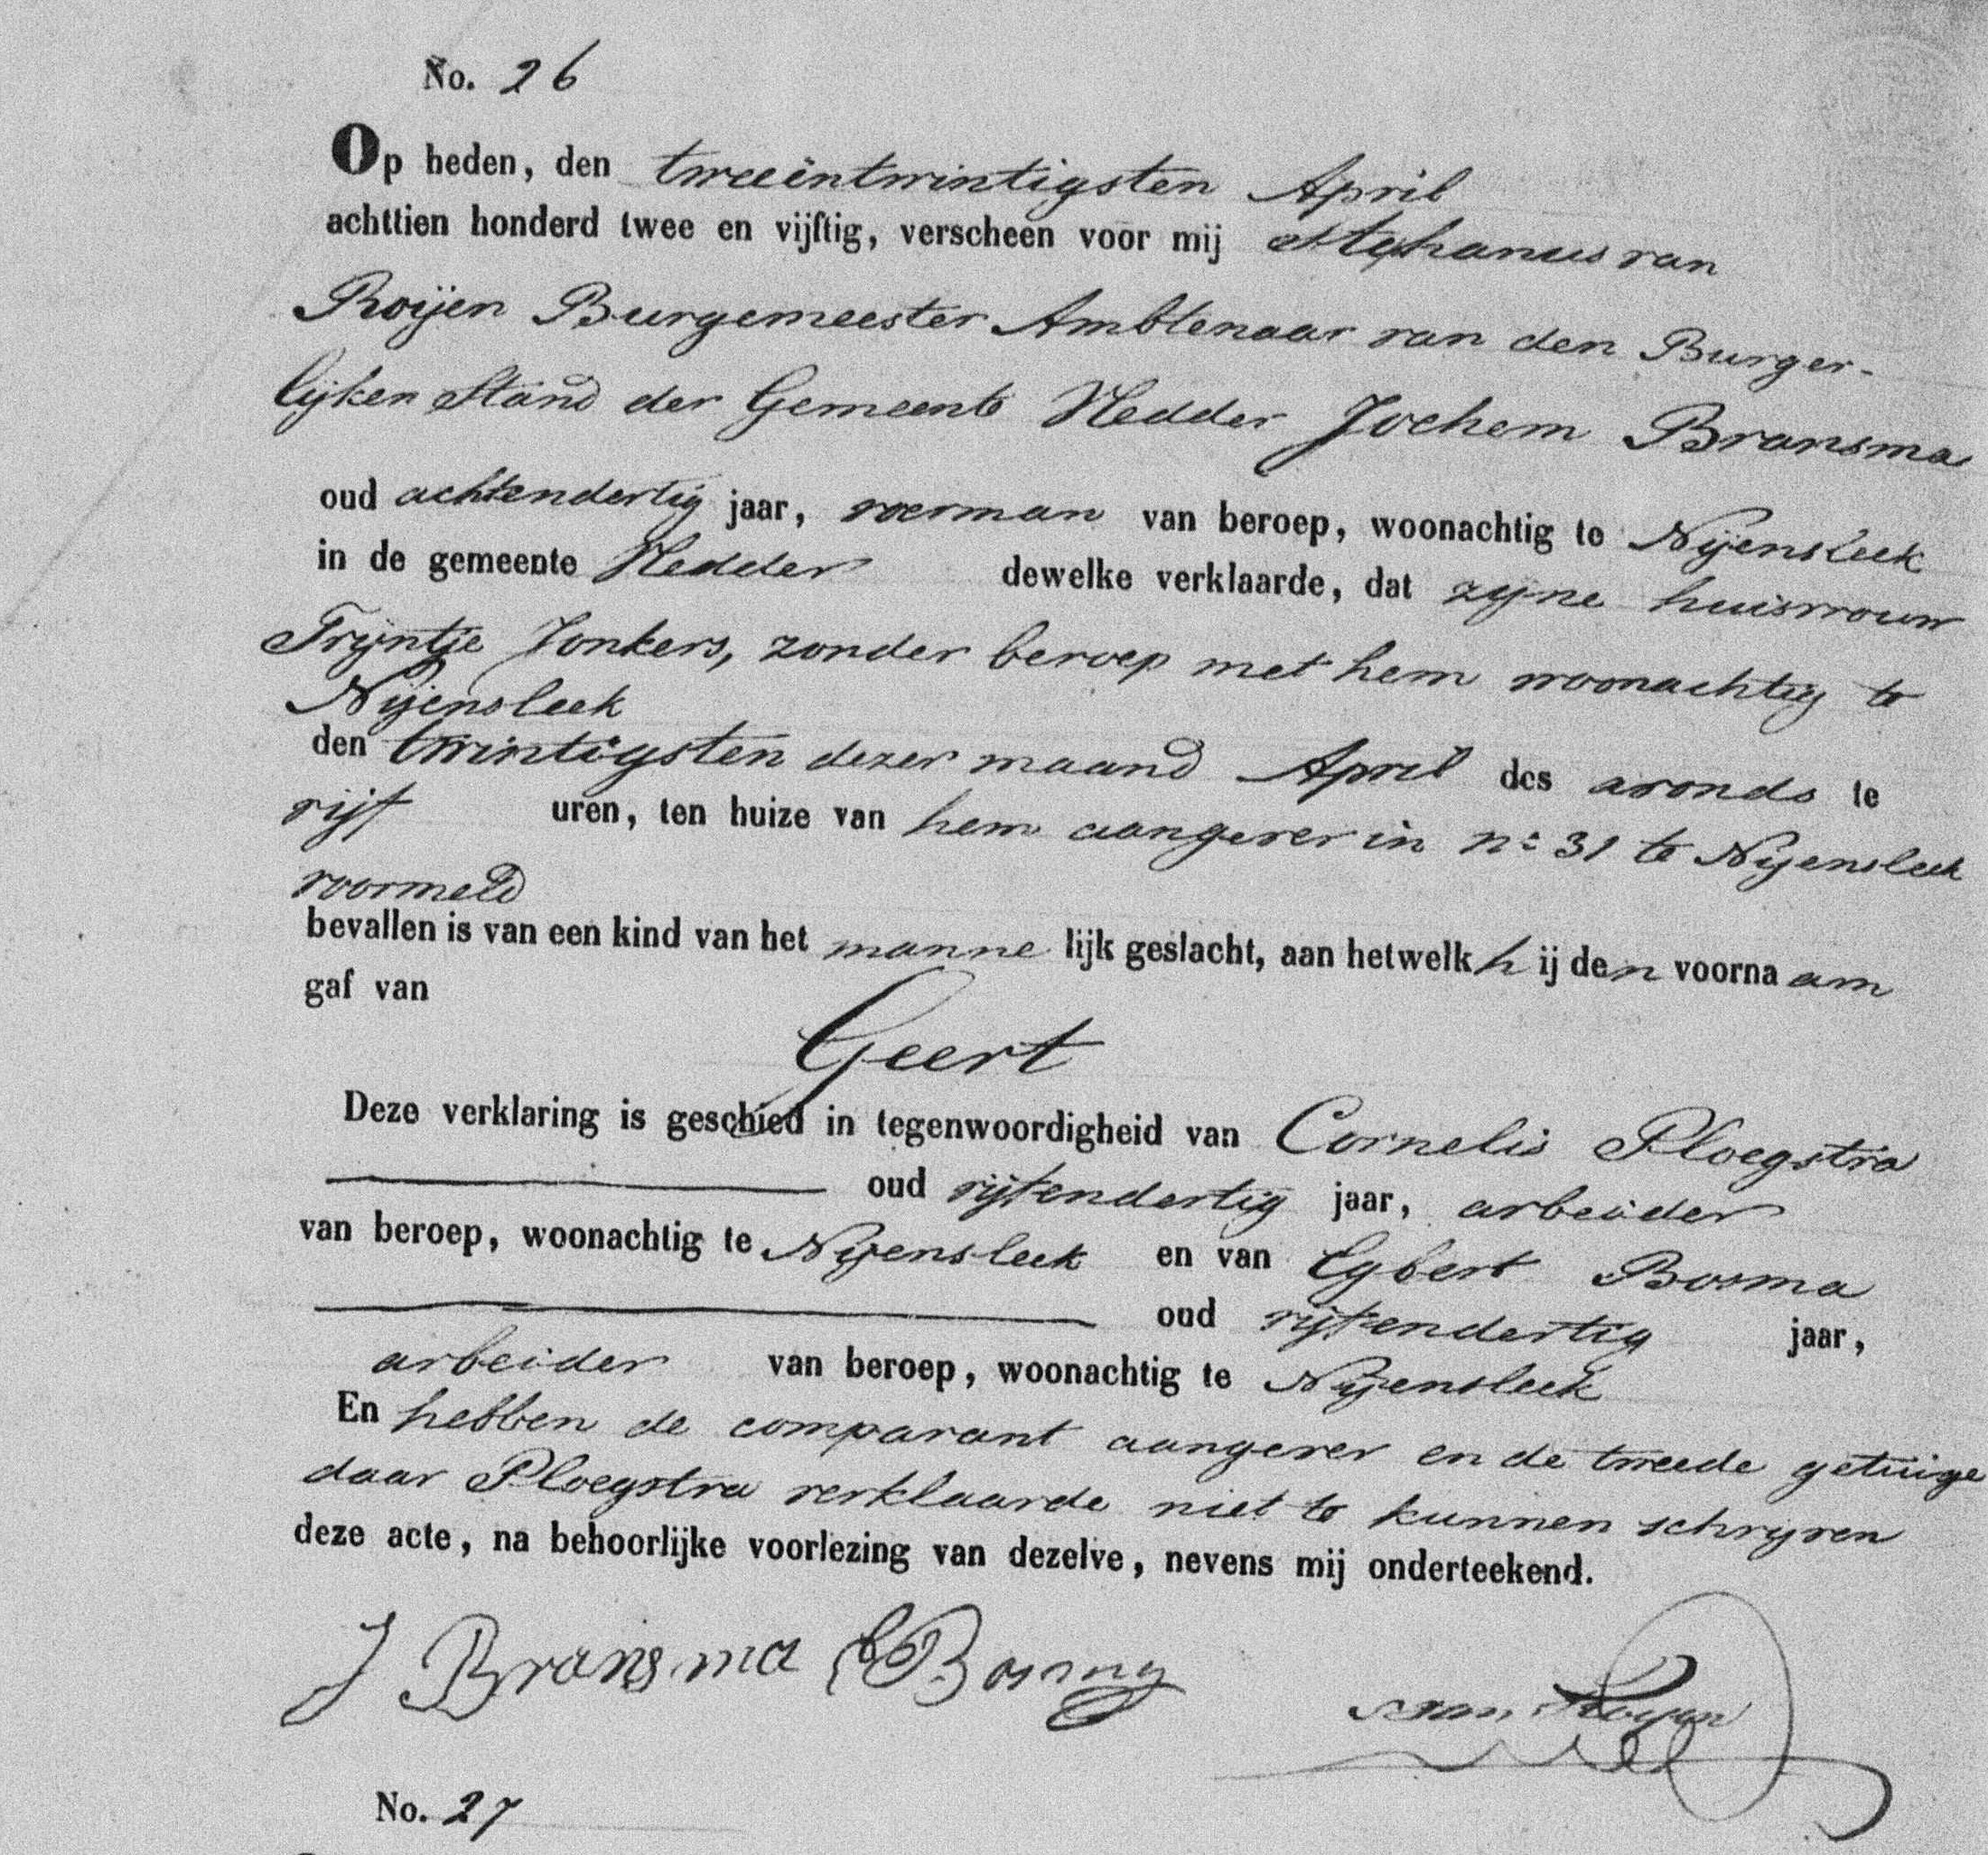 No. 26
Op heden, den tweeëntwintigsten April
achttien honderd twee en vijftig, verscheen voor mij Stephanus van
Roijen Burgemeester Ambtenaar van den Burger-
lijken Stand der Gemeente Vledder Jochem Bransma
oud achtendertig jaar, voerman van beroep, woonachtig te Nijensleek
in de gemeente Vledder dewelke verklaarde, dat zijne huisvrouw
Trijntje Jonkers, zonder beroep met hem woonachtig te
Nijensleek
den twintigsten dezer maand April des avonds te
vijf uren, ten huize van hem aangever in no 31 te Nijensleek
voormeld
bevallen is van een kind van het mannelijk geslacht, aan hetwelk hij den voornaam
gaf van
Geert
Deze verklaring is geschied in tegenwoordigheid van Cornelis Ploegstra
oud vijfendertig jaar, arbeider
van beroep, woonachtig te Nijensleek en van Egbert Bosma
oud vijfendertig jaar,
arbeider van beroep, woonachtig te Nijensleek
En hebben de comparant aangever en de tweede getuige
daar Ploegstra verklaarde niet te kunnen schrijven
deze acte, na behoorlijke voorlezing van dezelve, nevens mij onderteekend.
J Bransma E Bosma
S van Roijen
No. 27